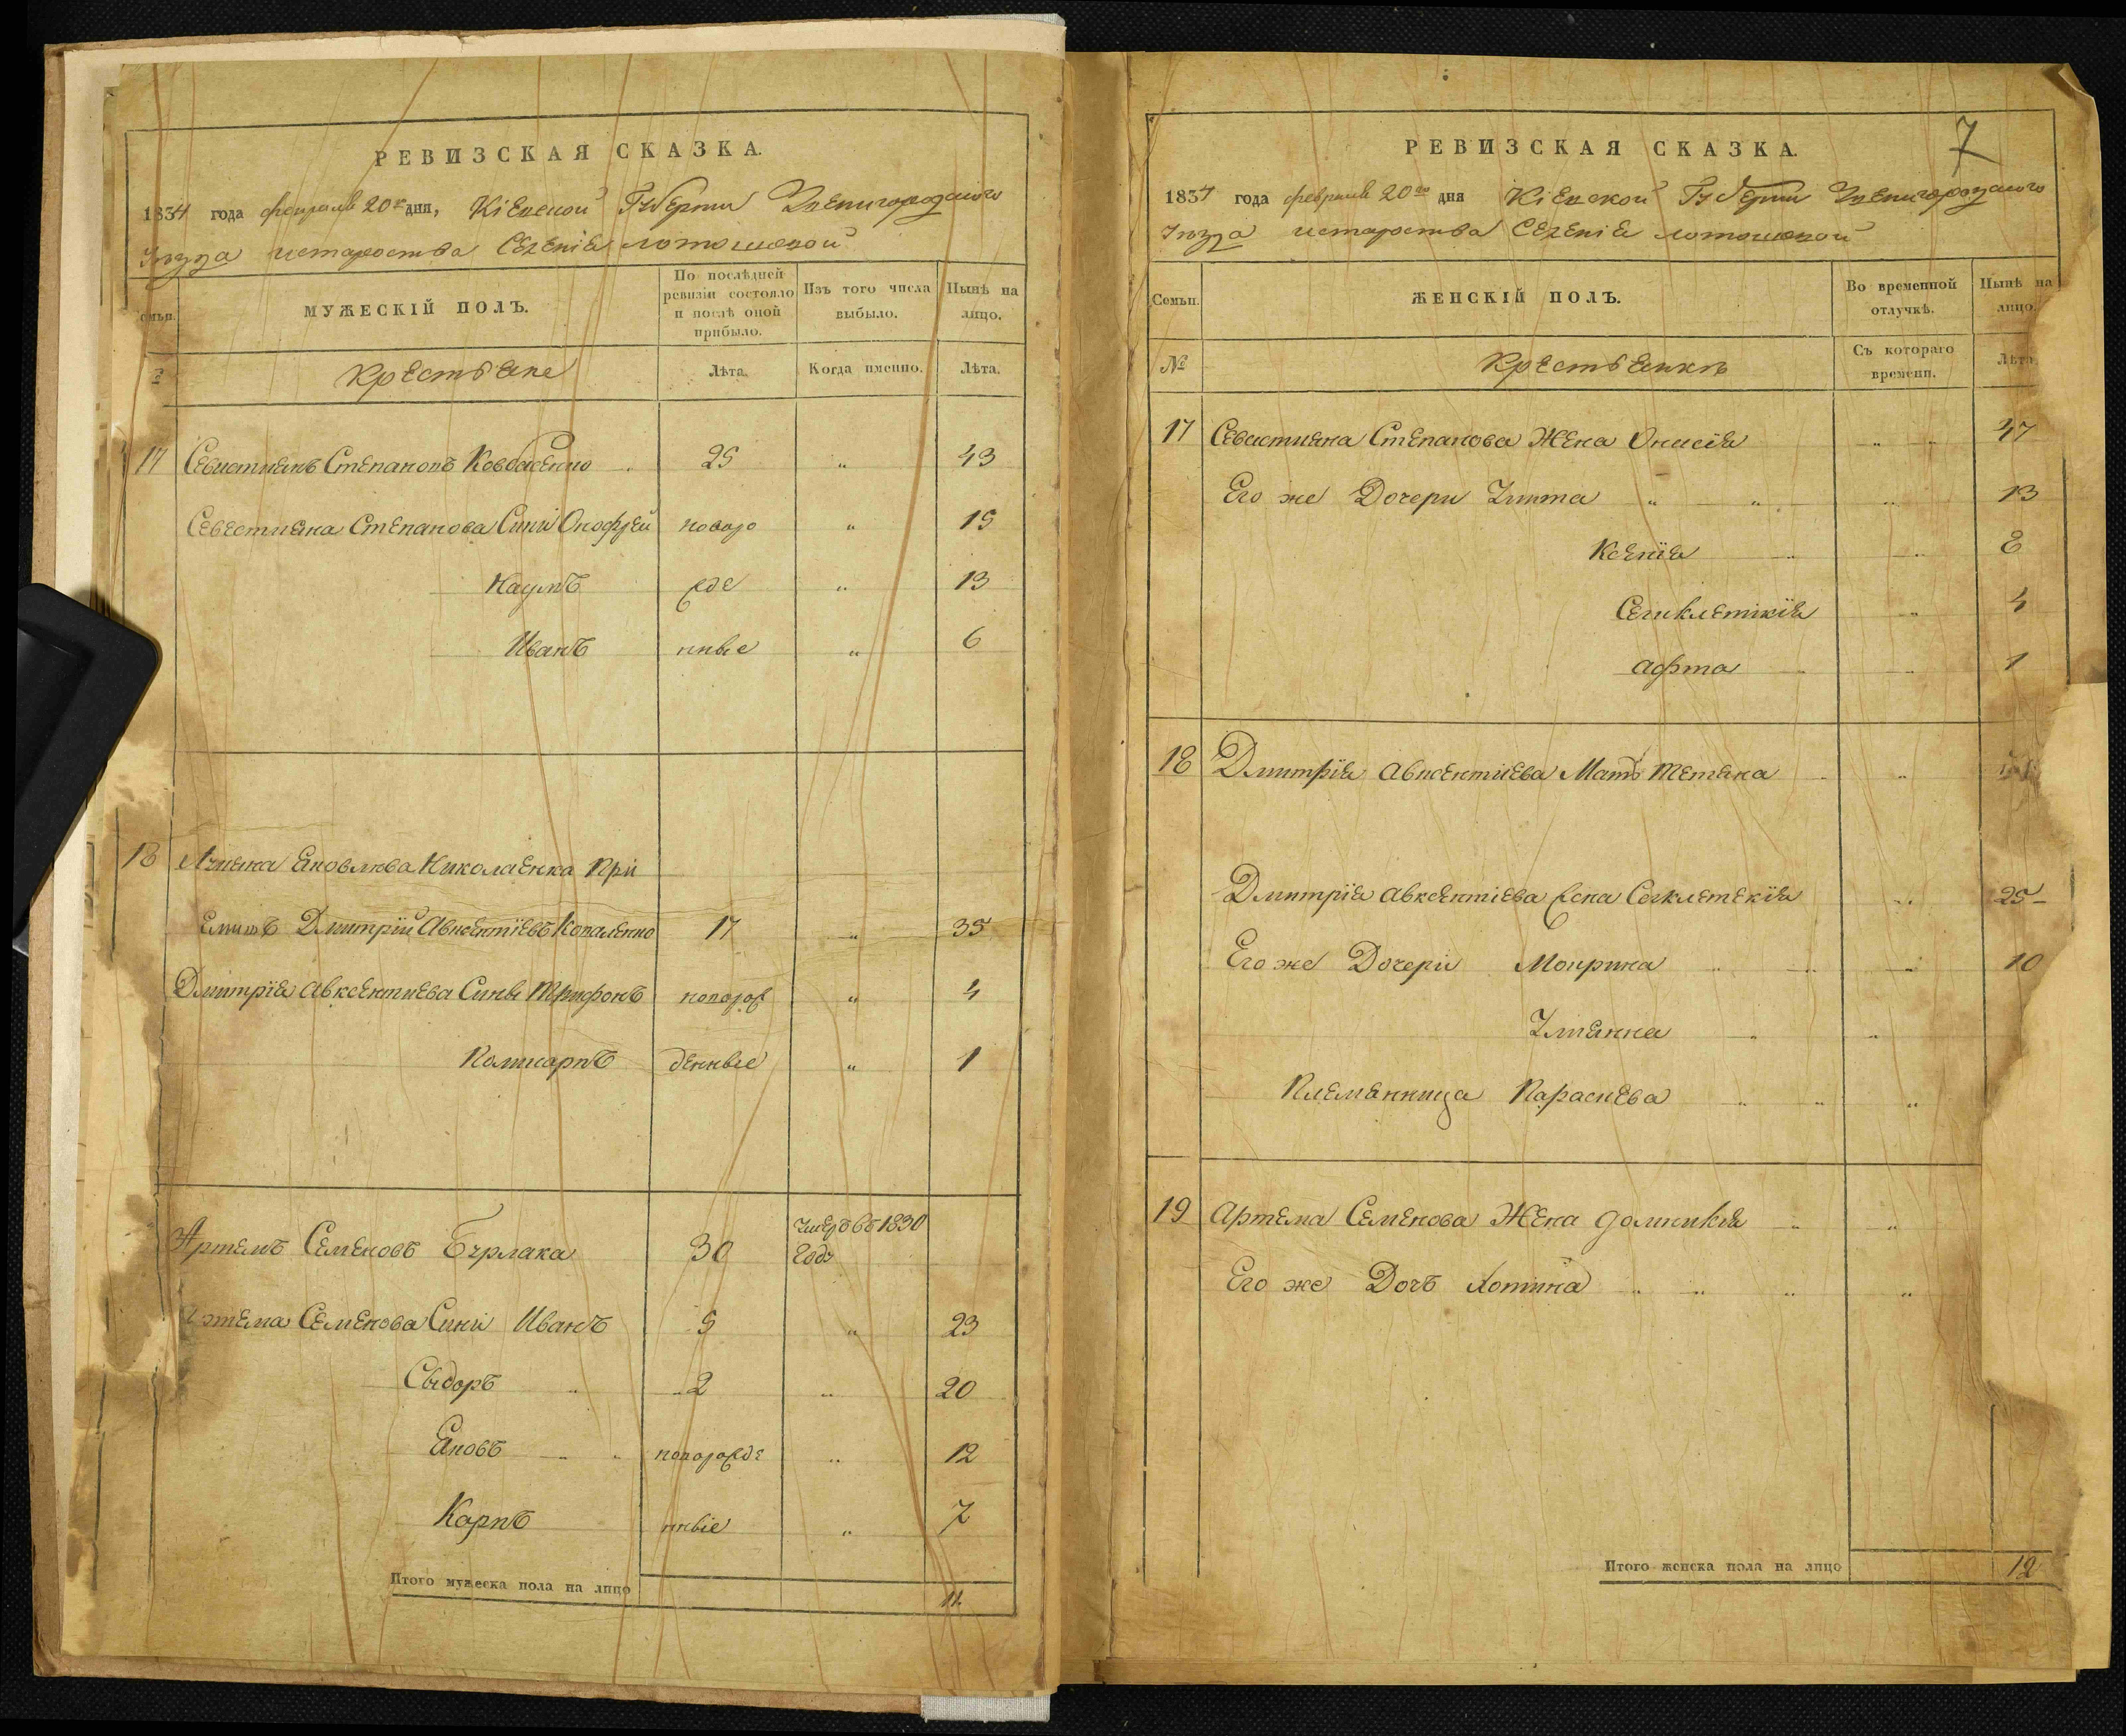 РЕВИЗСКАЯ СКАЗКА.
1834 года февраля 20го дня, Кіевской Губерніи Звенигородского
Уезда истароства Селенія
мьи.
МУЖЕСКІЙ ПОЛЪ.
По послѣдней ревизіи состояло и послѣ оной прибыло.
Изъ того числа выбыло.
Нынѣ на лицо.
Крестьяне
Лѣта.
Когда именно.
Лѣта.
17 Севистиянъ Степановъ 25 " 43
Севестияна Степанова Сини Онофрей новоро " 15
Наумъ жде " 13
Иванъ нные " 6
18 Яковлева Николаенка При
Емишъ Дмитрій Авксентіевъ Коваленко 17 " 35
Дмитрія Авксентиева Сины Трифонъ новорож " 4
Поликарпъ денные " 1
Артемъ Семеновъ Бурлака 30 Умеръ въ 1830 Году
ртема Семенова Сини Иванъ 5 " 23
Сыдоръ 2 " 20
Яковъ новорожде " 12
Карпъ нніе " 7
Итого мужеска пола на лицо 11.
7
РЕВИЗСКАЯ СКАЗКА.
1834 года февраля 20го дня Кіевской Губерніи Звенигородского
Уезда истароства Селенія
Семьи.
ЖЕНСКІЙ ПОЛЪ.
Во временной отлучкѣ.
Нынѣ на лицо.
№
Крестьянкъ
Съ котораго времени.
Лѣта
17 Севистияна Степанова Жена Онисія " " 47
Его же Дочери " " " 13
Ксенія " " 8
" 4
1
18 Дмитрія Авксентиева Мать Тетяна "
Дмитрія Авксентіева Жена Секлетекія " 25
Его же Дочери Мокрина " " " 10
Улиянна " "
Племянница Параскева " " "
19 Артема Семенова Жена Домникія " "
Его же Дочъ " " " "
Итого женска пола на лицо 12